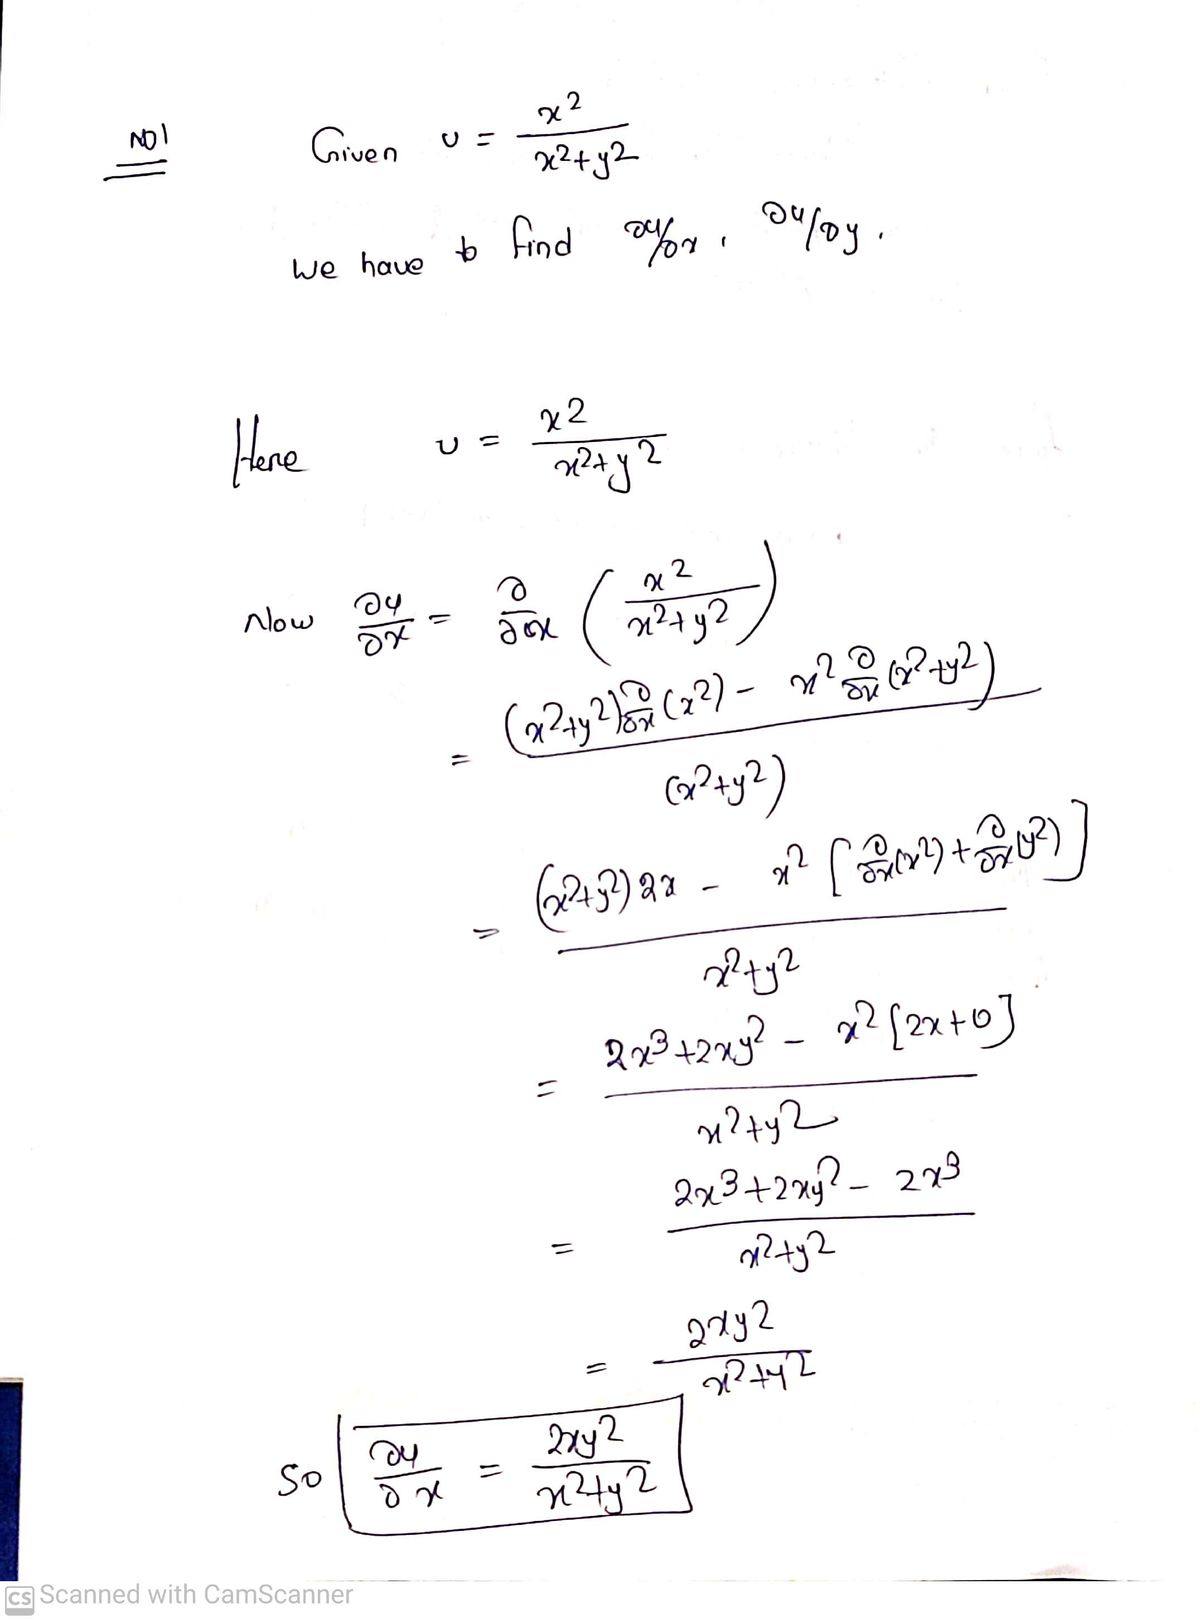 NO1 Given u = x²/(x²+y²)
we have to find ∂u/∂x, ∂u/∂y.
Here u = x²/(x²+y²)
Now ∂u/∂x = ∂/∂x (x²/(x²+y²))
= ((x²+y²) ∂/∂x (x²) - x² ∂/∂x (x²+y²))/(x²+y²)
= ((x²+y²) 2x - x² [∂/∂x (x²) + ∂/∂x (y²)])/(x²+y²)
= (2x³+2xy² - x² [2x+0])/(x²+y²)
= (2x³+2xy² - 2x³)/(x²+y²)
= 2xy²/(x²+y²)
So ∂u/∂x = 2xy²/(x²+y²)
CS Scanned with CamScanner